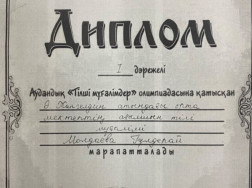 Диплом
I дәрежелі
Аудандық «Тілші мұғалімдер» олимпиадасына қатысқан
атындағы орта
мектептің ағылшын тілі
мұғалімі
Молдаева
марапатталады